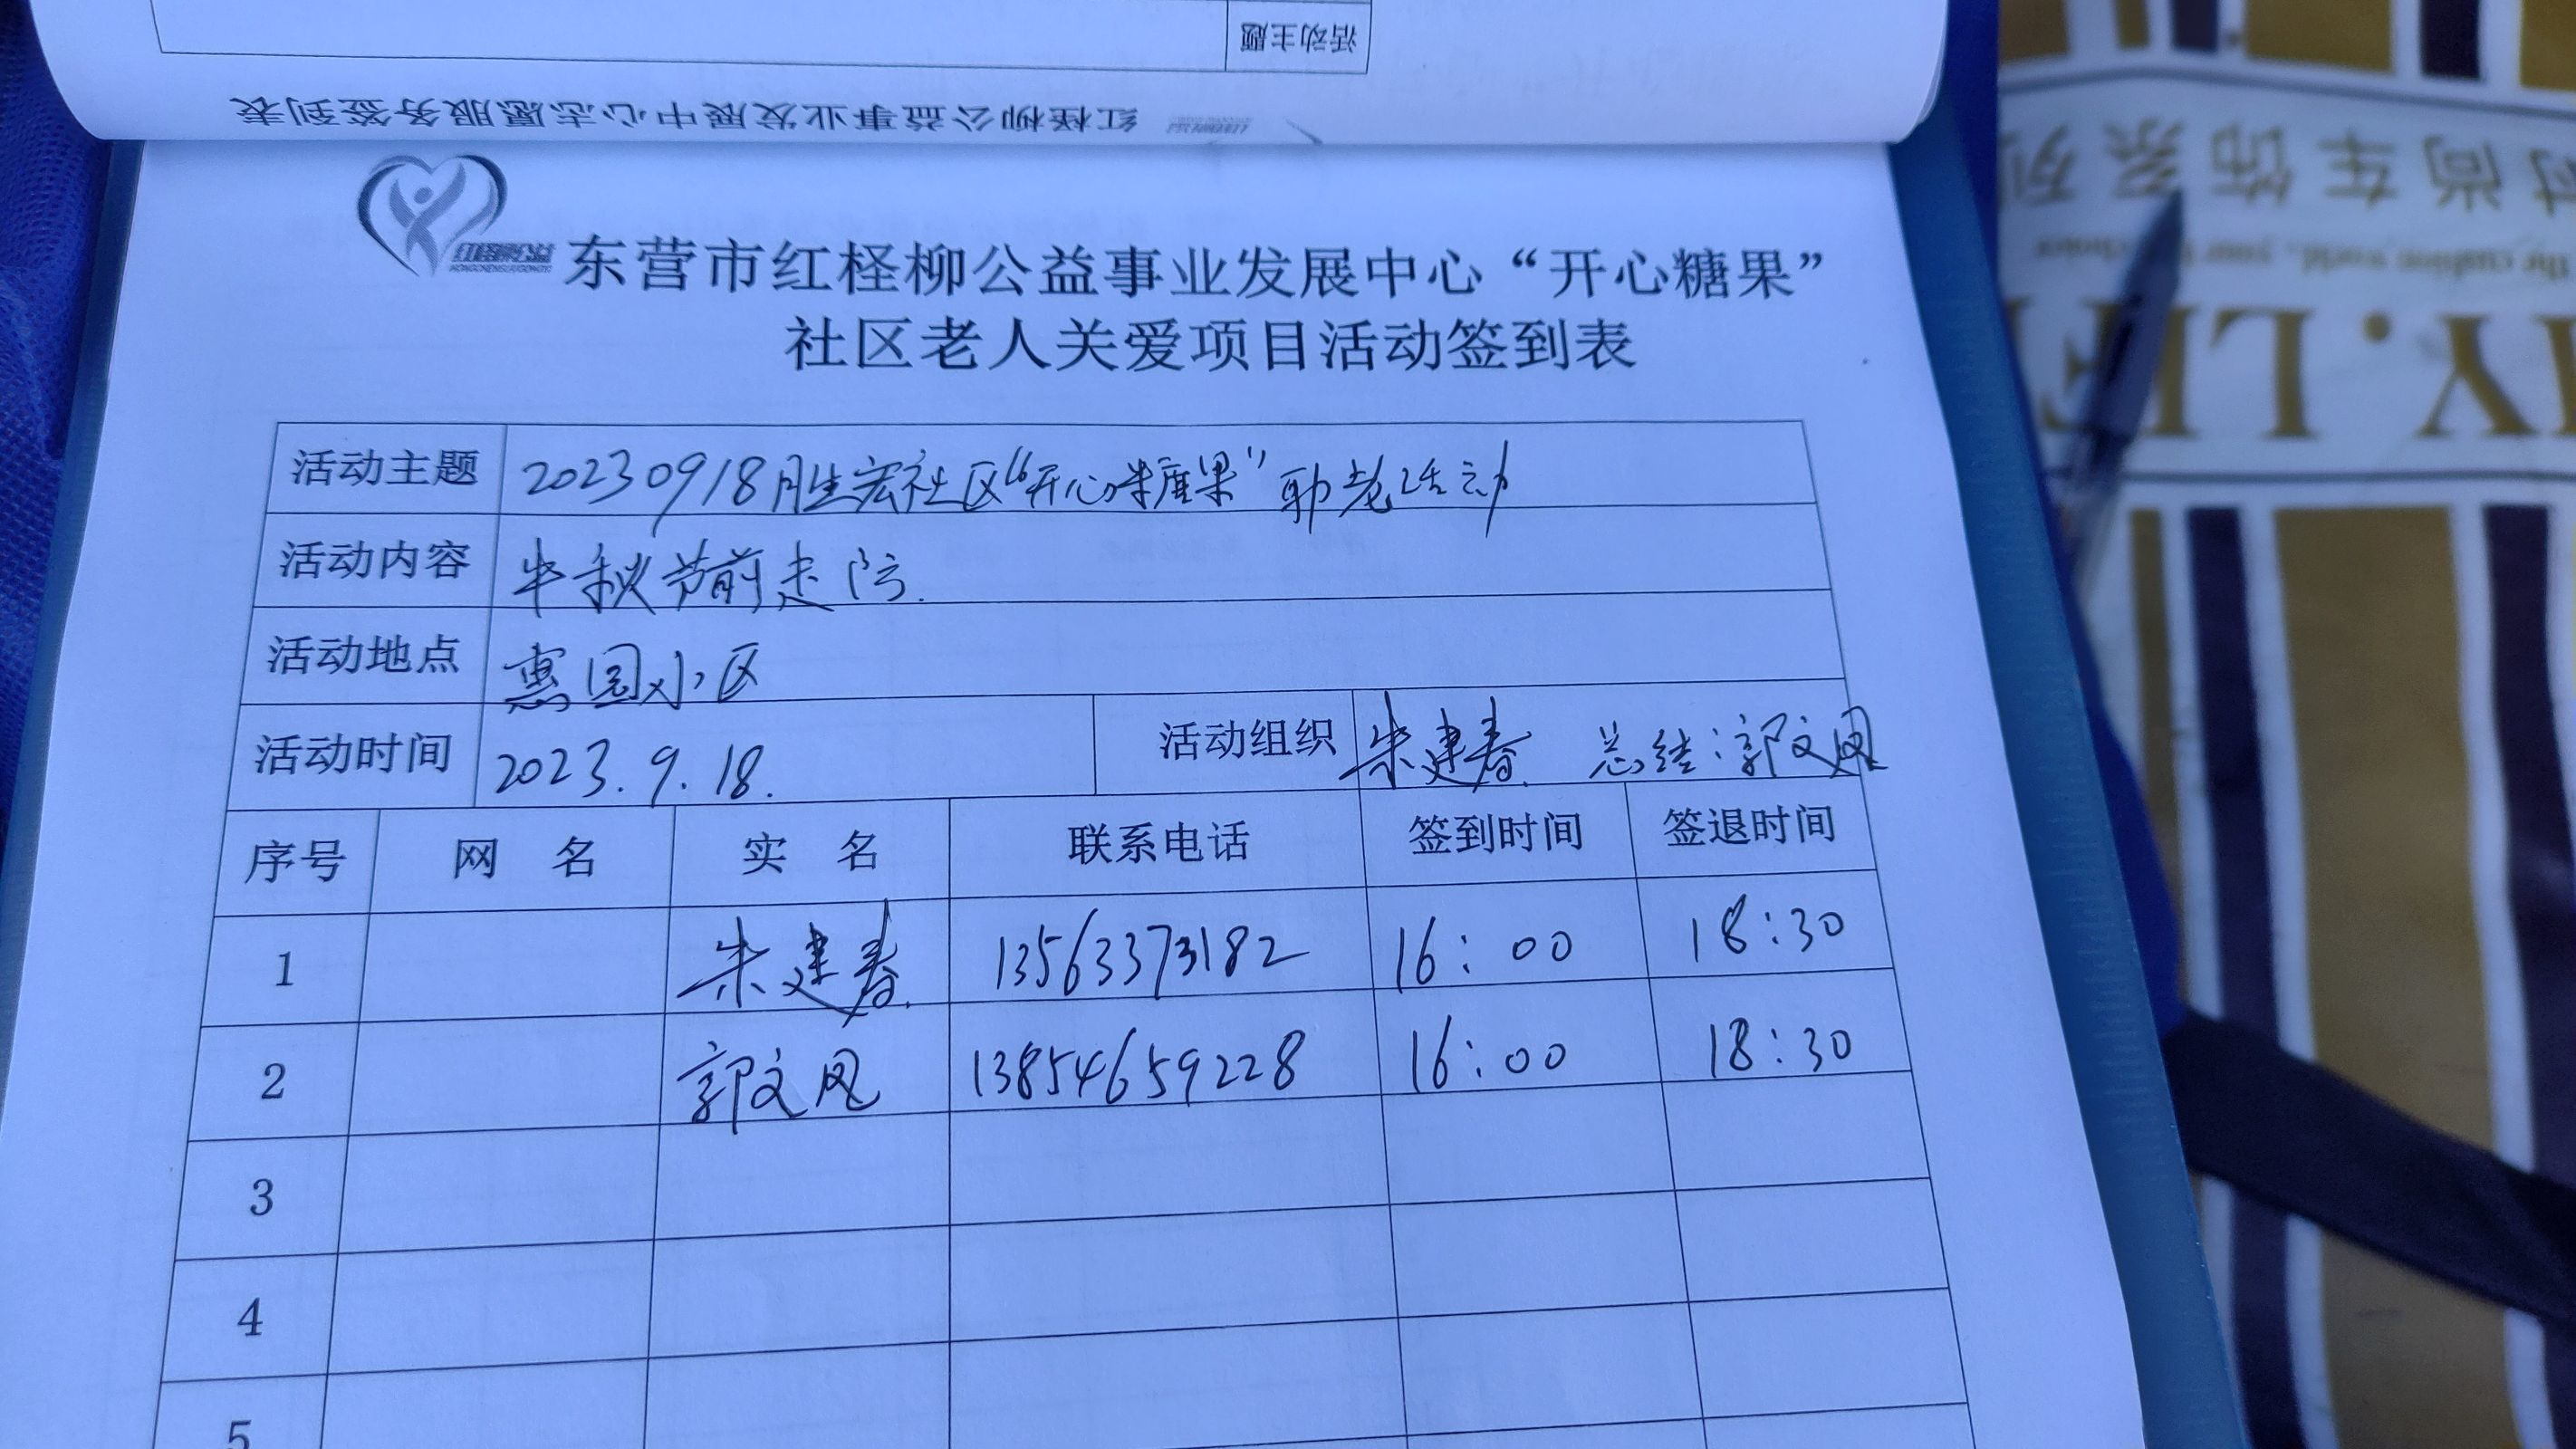 活动主题
红柽柳公益事业发展中心志愿服务签到表
红柽柳公益
东营市红柽柳公益事业发展中心“开心糖果”
社区老人关爱项目活动签到表
活动主题 20230918胜宏社区“开心糖果”助老活动
活动内容 中秋节前走访.
活动地点 惠园小区
活动时间 2023.9.18. 活动组织 朱建春 总结:郭文凤
序号 网 名 实 名 联系电话 签到时间 签退时间
1 朱建春. 13563373182 16:00 18:30
2 郭文凤 13854659228 16:00 18:30
3
4
5
时尚车饰系列